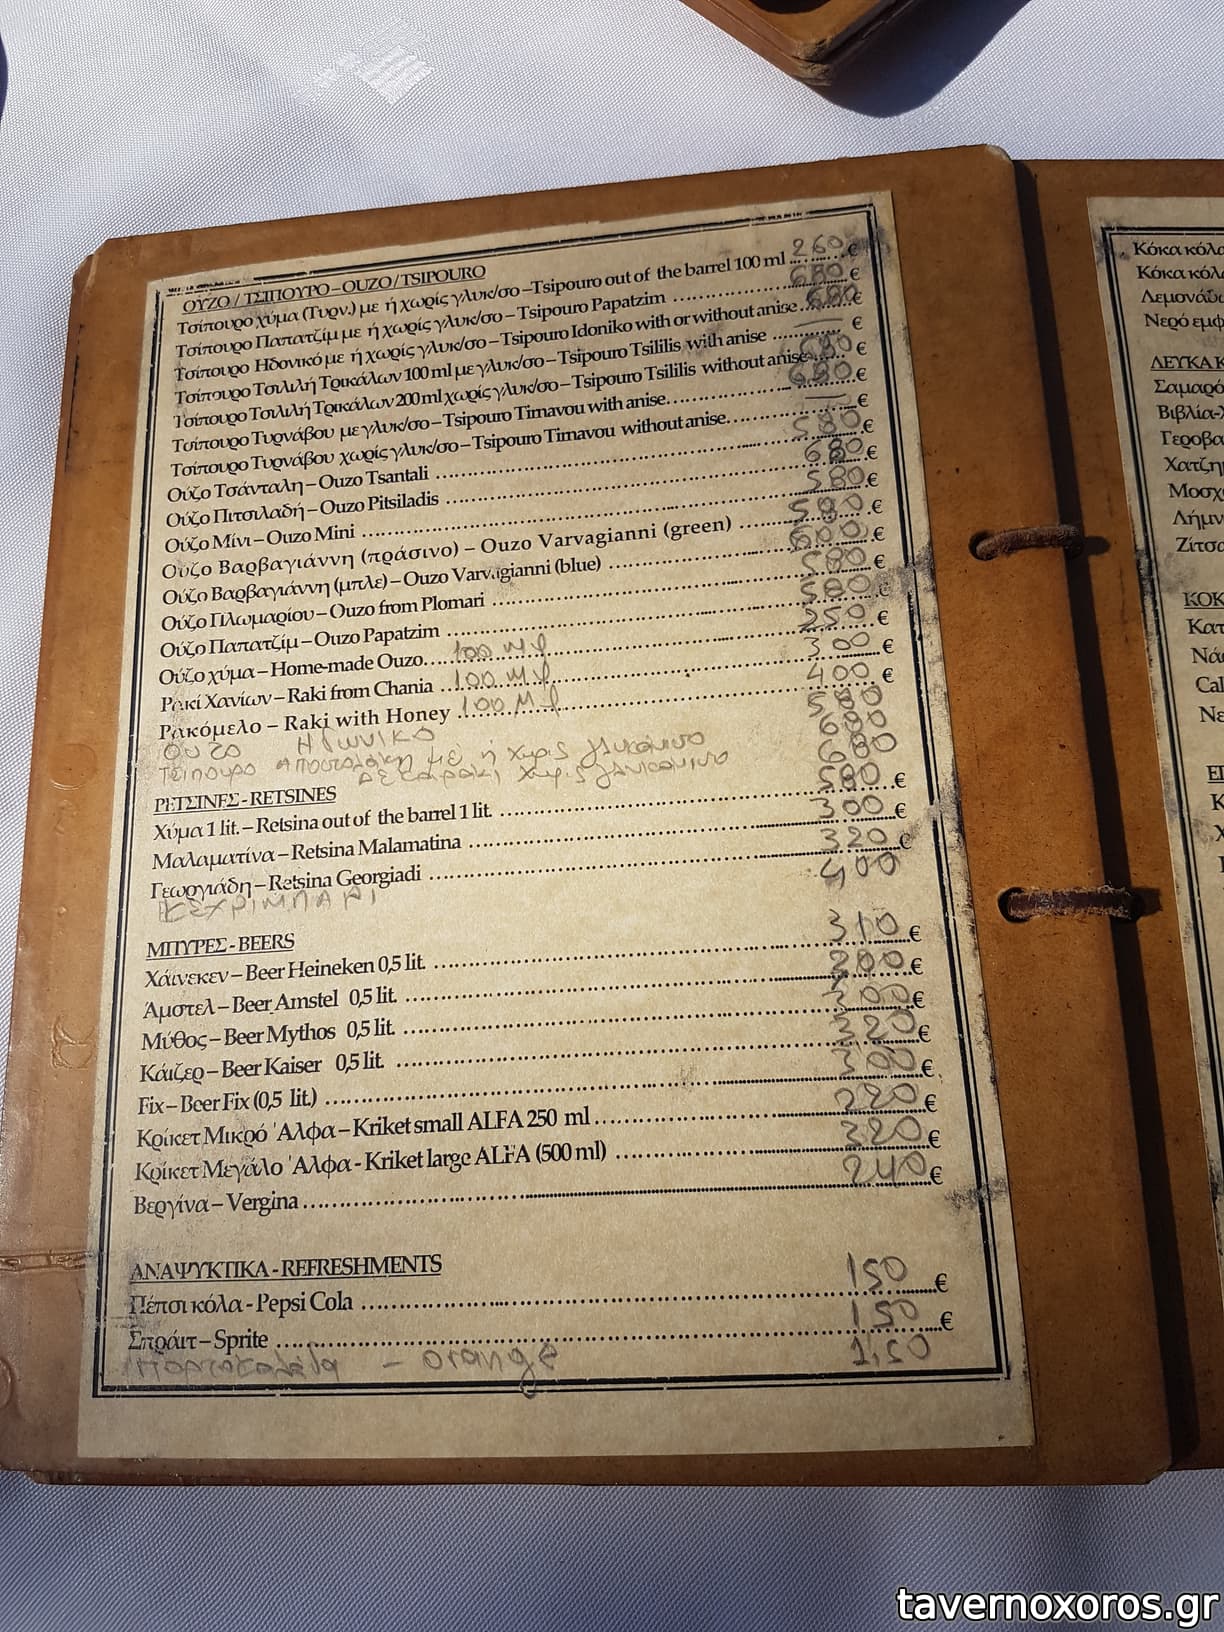 ΟΥΖΟ / ΤΣΙΠΟΥΡΟ – OUZO / TSIPOURO
Τσίπουρο χύμα (Τυρν.) με ή χωρίς γλυκ/σο – Tsipouro out of the barrel 100 ml ... 260 €
Τσίπουρο Παπατζίμ με ή χωρίς γλυκ/σο – Tsipouro Papatzim ... 680 €
Τσίπουρο Ηδονικό με ή χωρίς γλυκ/σο – Tsipouro Idoniko with or without anise ... 680 €
Τσίπουρο Τσιλιλή Τρικάλων 100 ml με γλυκ/σο – Tsipouro Tsililis with anise ... — €
Τσίπουρο Τσιλιλή Τρικάλων 200 ml χωρίς γλυκ/σο – Tsipouro Tsililis without anise ... 680 €
Τσίπουρο Τυρνάβου με γλυκ/σο – Tsipouro Tirnavou with anise ... 680 €
Τσίπουρο Τυρνάβου χωρίς γλυκ/σο – Tsipouro Tirnavou without anise ... — €
Ούζο Τσάνταλη – Ouzo Tsantali ... 580 €
Ούζο Πιτσιλαδή – Ouzo Pitsiladis ... 680 €
Ούζο Μίνι – Ouzo Mini ... 580 €
Ούζο Βαρβαγιάννη (πράσινο) – Ouzo Varvagianni (green) ... 580 €
Ούζο Βαρβαγιάννη (μπλε) – Ouzo Varvagianni (blue) ... 600 €
Ούζο Πλωμαρίου – Ouzo from Plomari ... 580 €
Ούζο Παπατζίμ – Ouzo Papatzim ... 580 €
Ούζο χύμα – Home-made Ouzo ... 100 Ml ... 250 €
Ρακί Χανίων – Raki from Chania ... 100 Ml ... 300 €
Ρακόμελο – Raki with Honey ... 100 Ml ... 400 €
ΟΥΖΟ ΗΔωΝΙΚΟ 580
Τσιπουρο Αποστολάκη με ή χωρις γλυκάνισο 680
χωρις γλυκανισο 680
ΡΕΤΣΙΝΕΣ - RETSINES
Χύμα 1 lit. – Retsina out of the barrel 1 lit. ... 580 €
Μαλαματίνα – Retsina Malamatina ... 300 €
Γεωργιάδη – Retsina Georgiadi ... 320 €
ΚΕΧΡΙΜΠΑΡΙ 400
ΜΠΥΡΕΣ - BEERS
Χάινεκεν – Beer Heineken 0,5 lit. ... 310 €
Άμστελ – Beer Amstel 0,5 lit. ... 300 €
Μύθος – Beer Mythos 0,5 lit. ... 300 €
Κάιζερ – Beer Kaiser 0,5 lit. ... 320 €
Fix – Beer Fix (0,5 lit.) ... 300 €
Κρίκετ Μικρό Άλφα – Kriket small ALFA 250 ml ... 220 €
Κρίκετ Μεγάλο Άλφα - Kriket large ALFA (500 ml) ... 320 €
Βεργίνα – Vergina ... 240 €
ΑΝΑΨΥΚΤΙΚΑ - REFRESHMENTS
Πέπσι κόλα - Pepsi Cola ... 150 €
Σπράιτ – Sprite ... 150 €
πορτοκαλάδα – orange 1,50
Κόκα κόλα
Κόκα κόλ
Λεμονάδ
Νερό εμφ
ΛΕΥΚΑ Κ
Σαμαρό
Βιβλία-Χ
Γεροβα
Χατζημ
Μοσχ
Λήμν
Ζίτσα
ΚΟΚ
Κατ
Νά
Cal
Νε
tavernoxoros.gr